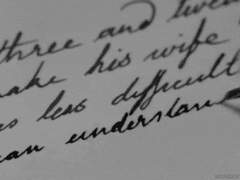 three and twen
make his wife
is less difficult
can understan